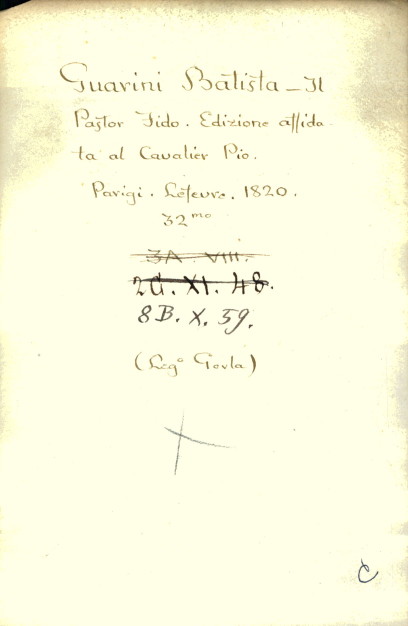 Guarini Batista - Il
Pastor Fido. Edizione affida
ta al Cavalier Pio.
Parigi. Lefevre. 1820.
32mo
3A. VIII.
2G. XI. 48.
8B. X. 59.
(Leg° Gerla)
C